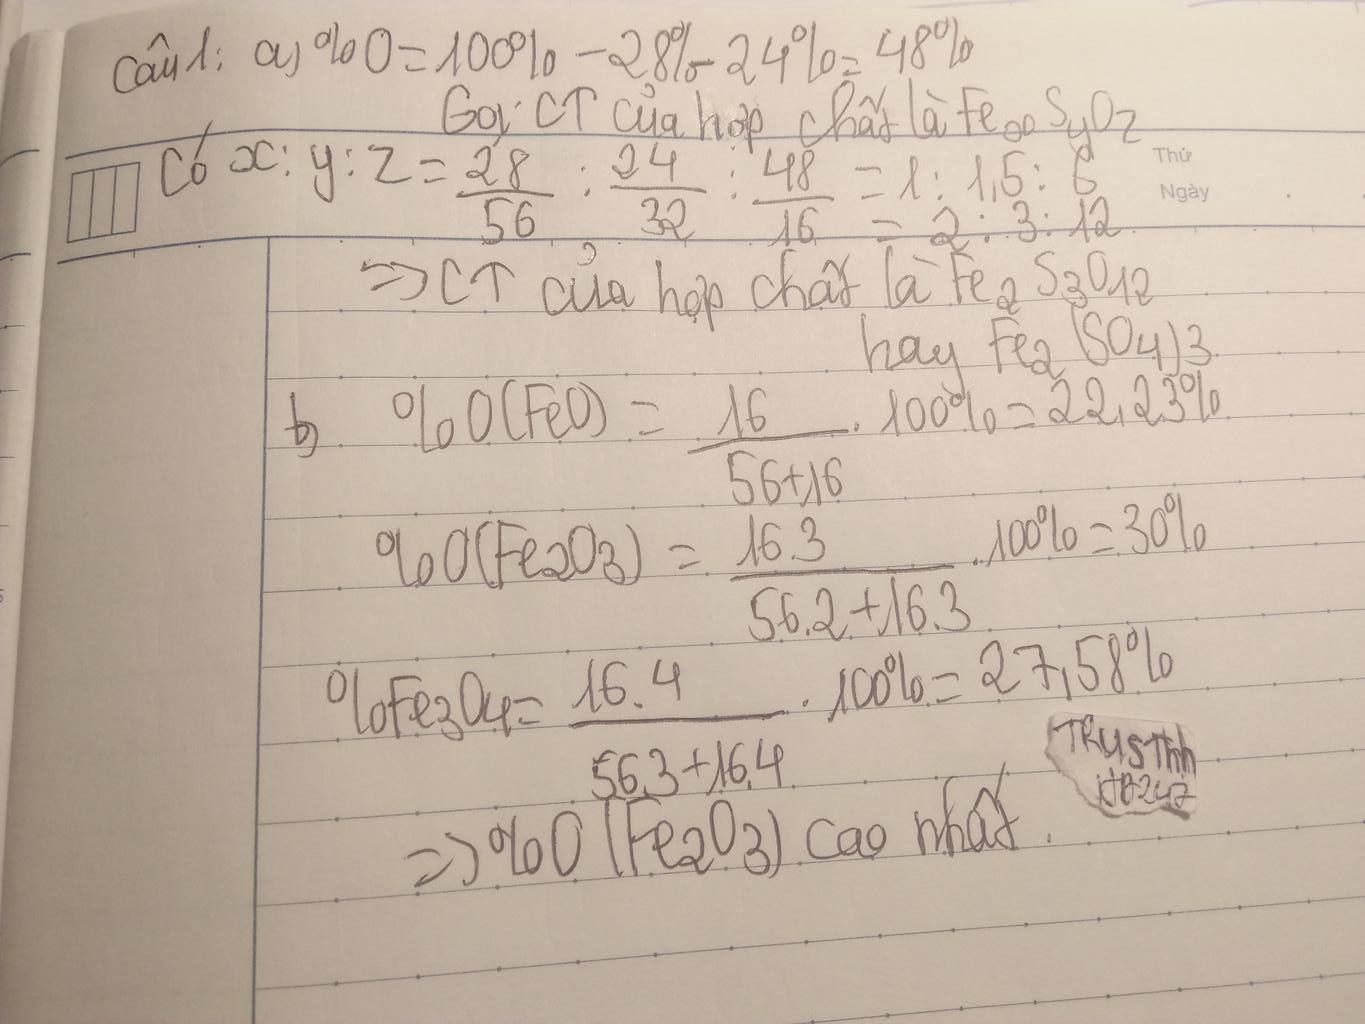 Câu 1: a, %O = 100% - 28% - 24% = 48%
Gọi CT của hợp chất là FexSyOz
Thứ
Có x : y : z = 28/56 : 24/32 : 48/16 = 1 : 1,5 : 6
Ngày
= 2 : 3 : 12
=> CT của hợp chất là Fe2S3O12
hay Fe2(SO4)3
b, %O(FeO) = 16/56+16 . 100% = 22,23%
%O(Fe2O3) = 16.3/56.2+16.3 . 100% = 30%
%Fe3O4 = 16.4/56.3+16.4 . 100% = 27,58%
=> %O (Fe2O3) cao nhất.